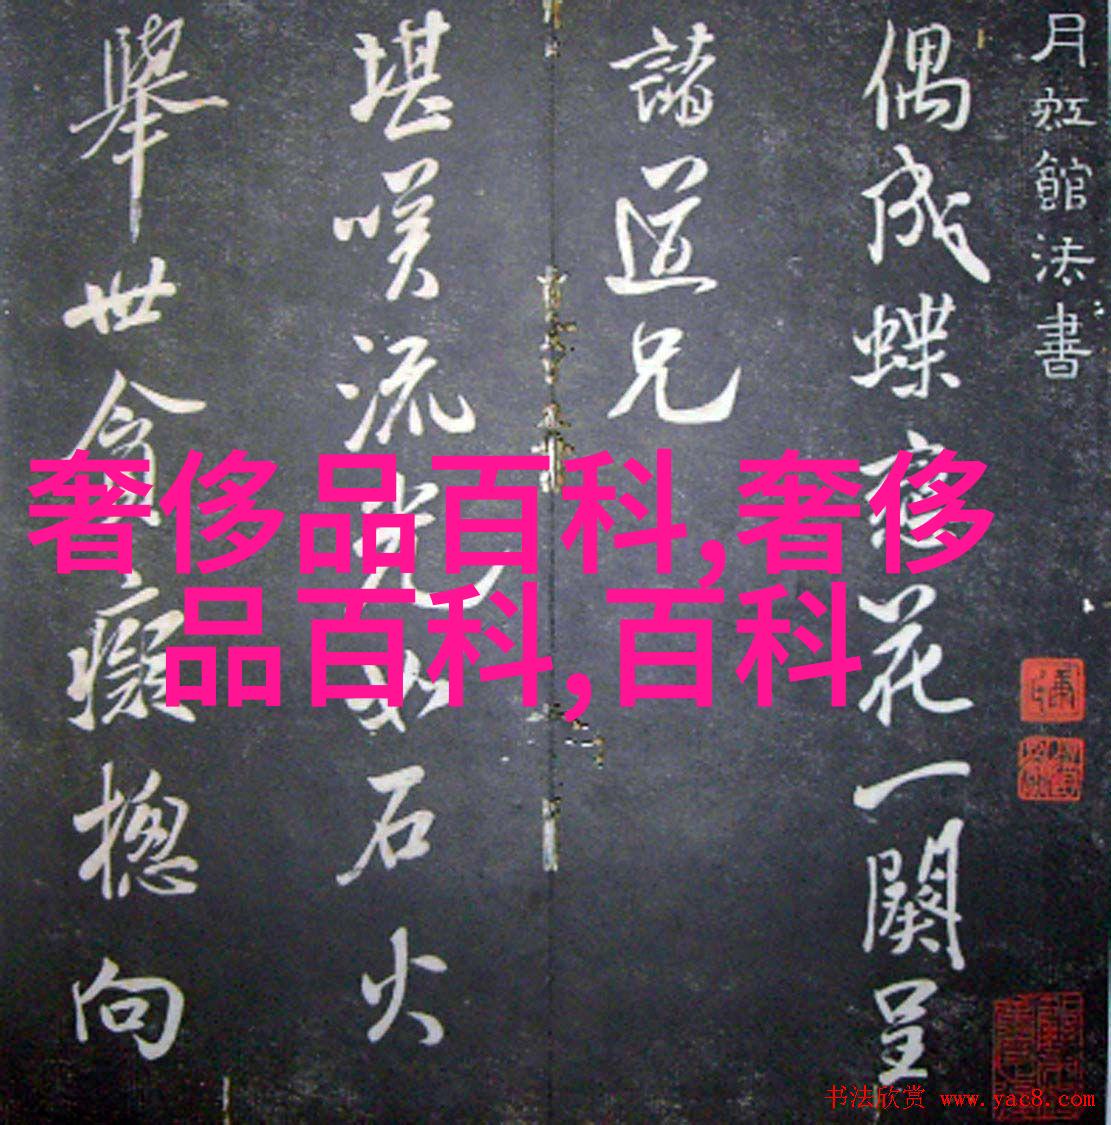 月虹館法書
偶成蝶戀花一闋呈
諸道兄
堪嘆流光如石火
舉世貪癡摠向
奢侈品百科,奢侈
品百科,百科
书法欣赏 www.yac8.com